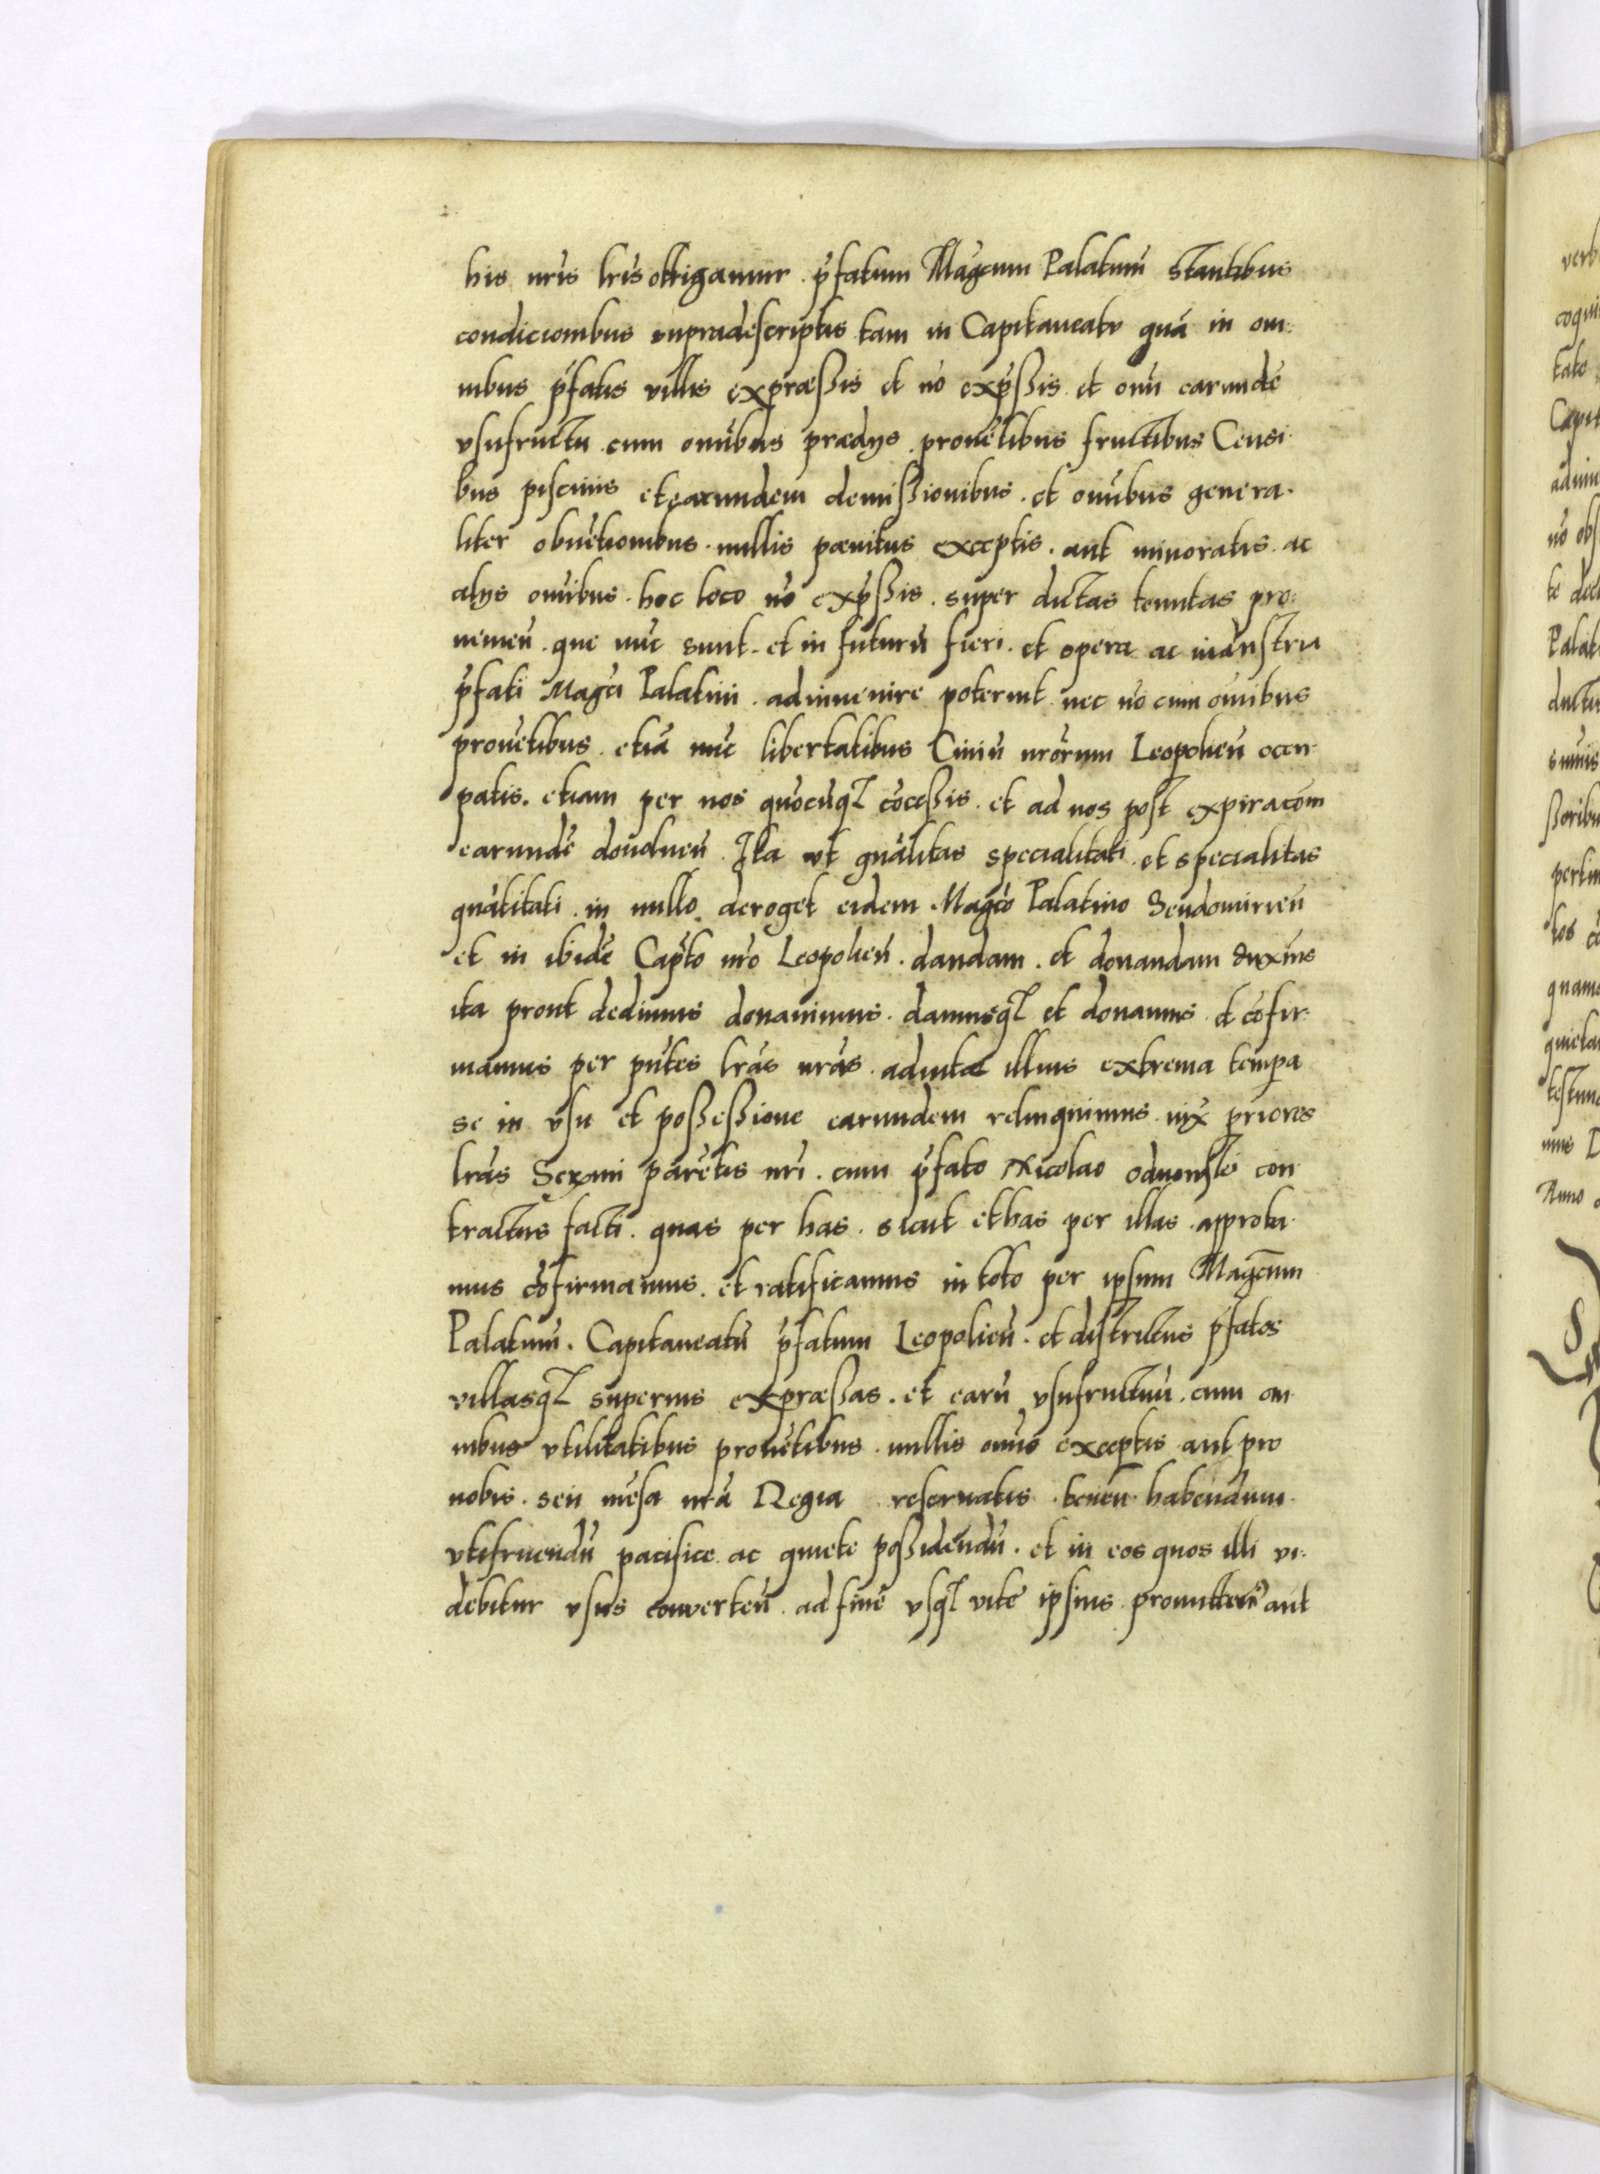 his nr̃is lr̃is obrigamur . p̃fatum Mag̃cum Palatinũ stantibus
condicionibus supradescriptis tam in Capitaneatu quã in om:
nibus p̃fatis villis expræssis et nõ exp̃ssis et om̃i earundẽ
vsufructu . cum om̃ibus prædijs . prouẽtibus fructibus Censi:
bus piscinis et earundem demissionibus . et om̃ibus genera:
liter obuẽtionibus . nullis pænitus exceptis . aut minoratis . ac
alijs om̃ibus . hoc loco nõ exp̃ssis . super dictas tenutas pro:
uenien̄ . que nũc sunt . et in futurũ fieri . et opera ac industria
p̃fati Mag̃ci Palatini . adinuenire poterint nec nõ cum om̃ibus
prouẽtibus . etiã nũc libertatibus Ciuiũ nr̃orum Leopolien̄ occu:
patis . etiam per nos quocũq̃ cõcessis . et ad nos post expiracõm
earundẽ deuoluen̄ . Ita vt gñalitas specialitati . et specialitas
gñalitati . in nullo deroget eidem . Mag̃co Palatino Sendomirien̄
et in ibidẽ Cap̃to nr̃o Leopolien̄ . dandam . et donandam duxim̃s
ita prout dedimus donauimus . damusq̃ et donamus . et cõfir:
mamus per pñtes lr̃as nr̃as . ad vitæ illius extrema tempa
se in vsu et possessione earundem relinquimus . iux̃ priores
lr̃as Serẽmi parẽtis nr̃i . cum p̃fato Nicolao odnowski con
tractus facti . quas per has . sicut et has per illas . approba:
mus cõfirmamus . et ratificamus in toto per ipsum Mag̃cum
Palatinũ . Capitaneatũ p̃fatum Leopolien̄ . et districtus p̃fatos
villasq̃ superius expræssas . et earũ vsufructuũ . cum om
nibus vtilitatibus prouẽtibus . nullis om̃ino exceptis aut pro
nobis . seu mẽsa nr̃a Regia reseruatis . tenen̄ habendum
vtifruendũ pacifice ac quiete possidendũ . et in eos quos illi vi:
debitur vsus conuerten̄ . ad finẽ vsq̃ vite ipsius . promittetes aut